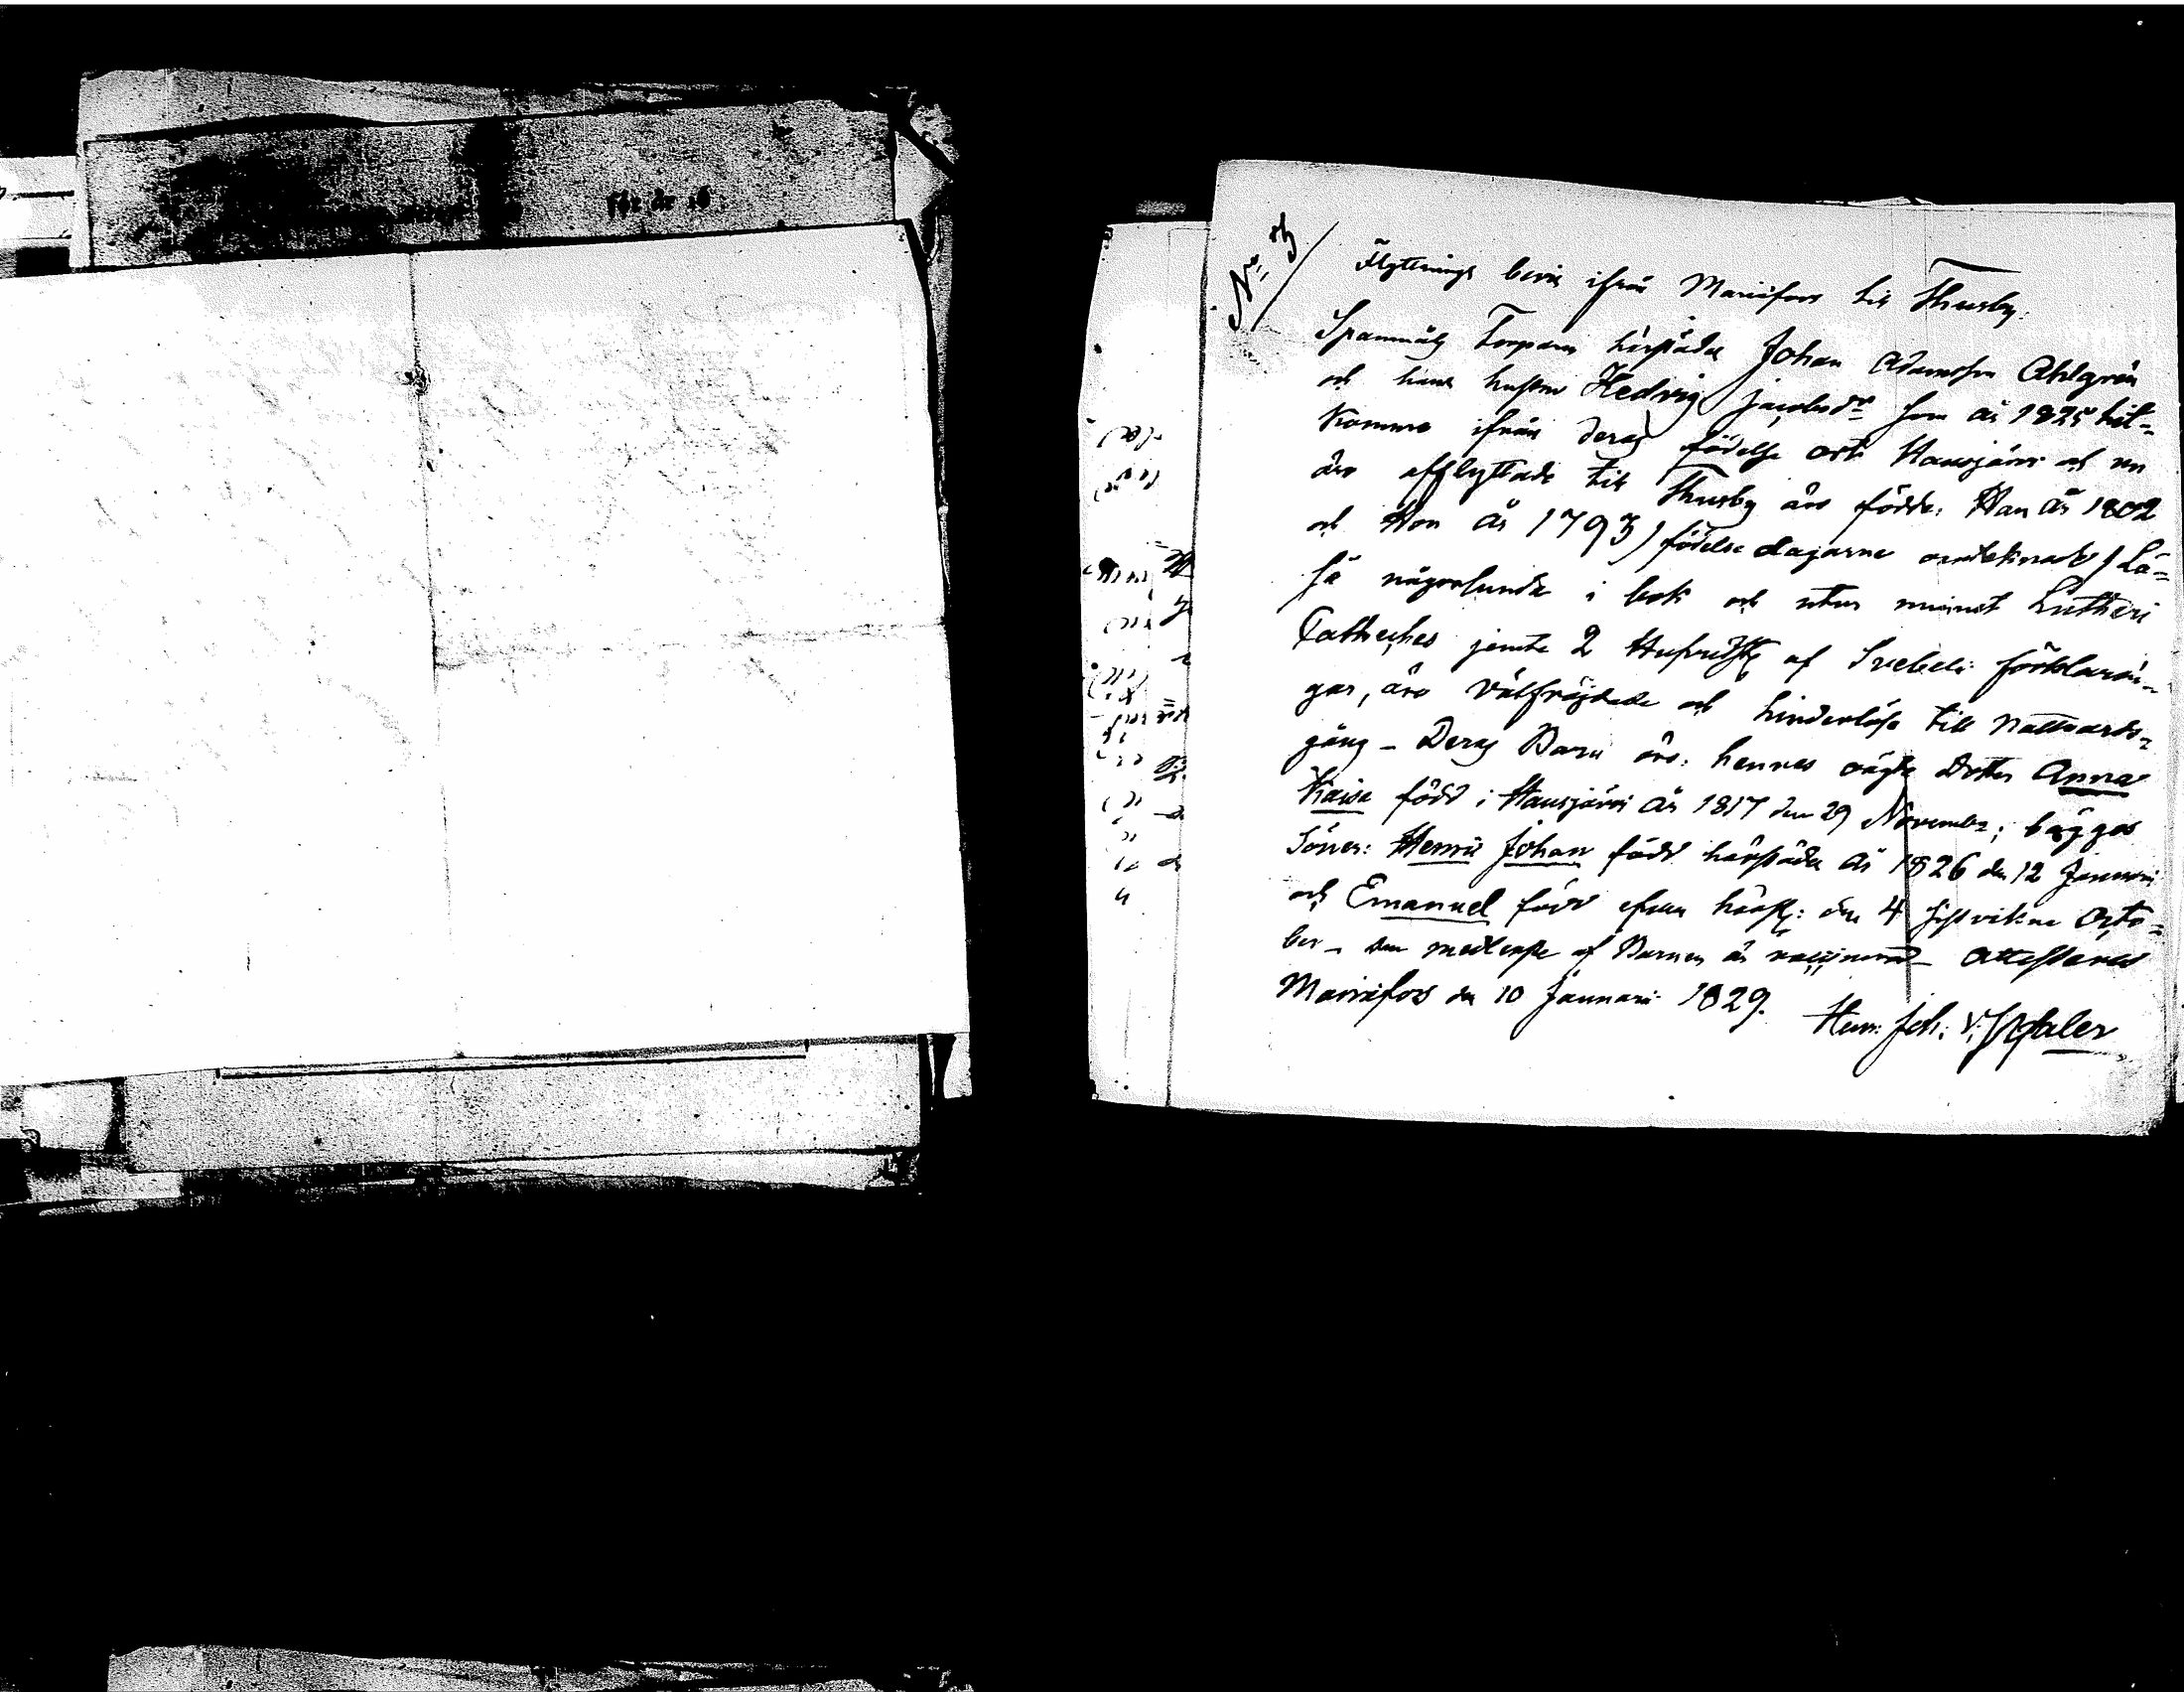 för år 18
Flyttnings bevis ifrån Mariifors till Thusby.
Spannmåls Torparen härstädes Johan Adamsson Ahlgrén
och hans hustru Hedvig Jacobsdr som år 1825 hit-
kommo ifrån deras födelse ort Hausjärvi och nu
äro afflyttade till Thusby äro födde: Han år 1802
och Hon år 1793 / födelse dagarne /: Lä-
sa någorlunda i bok och utur minnet Lutheri
Catheches jemte 2 Hufvudst: af Svebelii förklarin-
gar, äro välfrägdade och hinderlöse till Nattvards-
gång – Deras Barn äro: hennes oägta dotter Anna
Kaisa född i Hausjärvi år 1817 den 29 November; bägges
Söner: Henric Johan född härstädes år 1826 den 12 Januari
och Emanuel född härst: den 4 sistvikne Octo-
ber – den medlerste af Barnen är vaccinerad – Attesteras
Mariifors den 10 Januari 1829.
Henr: Joh: